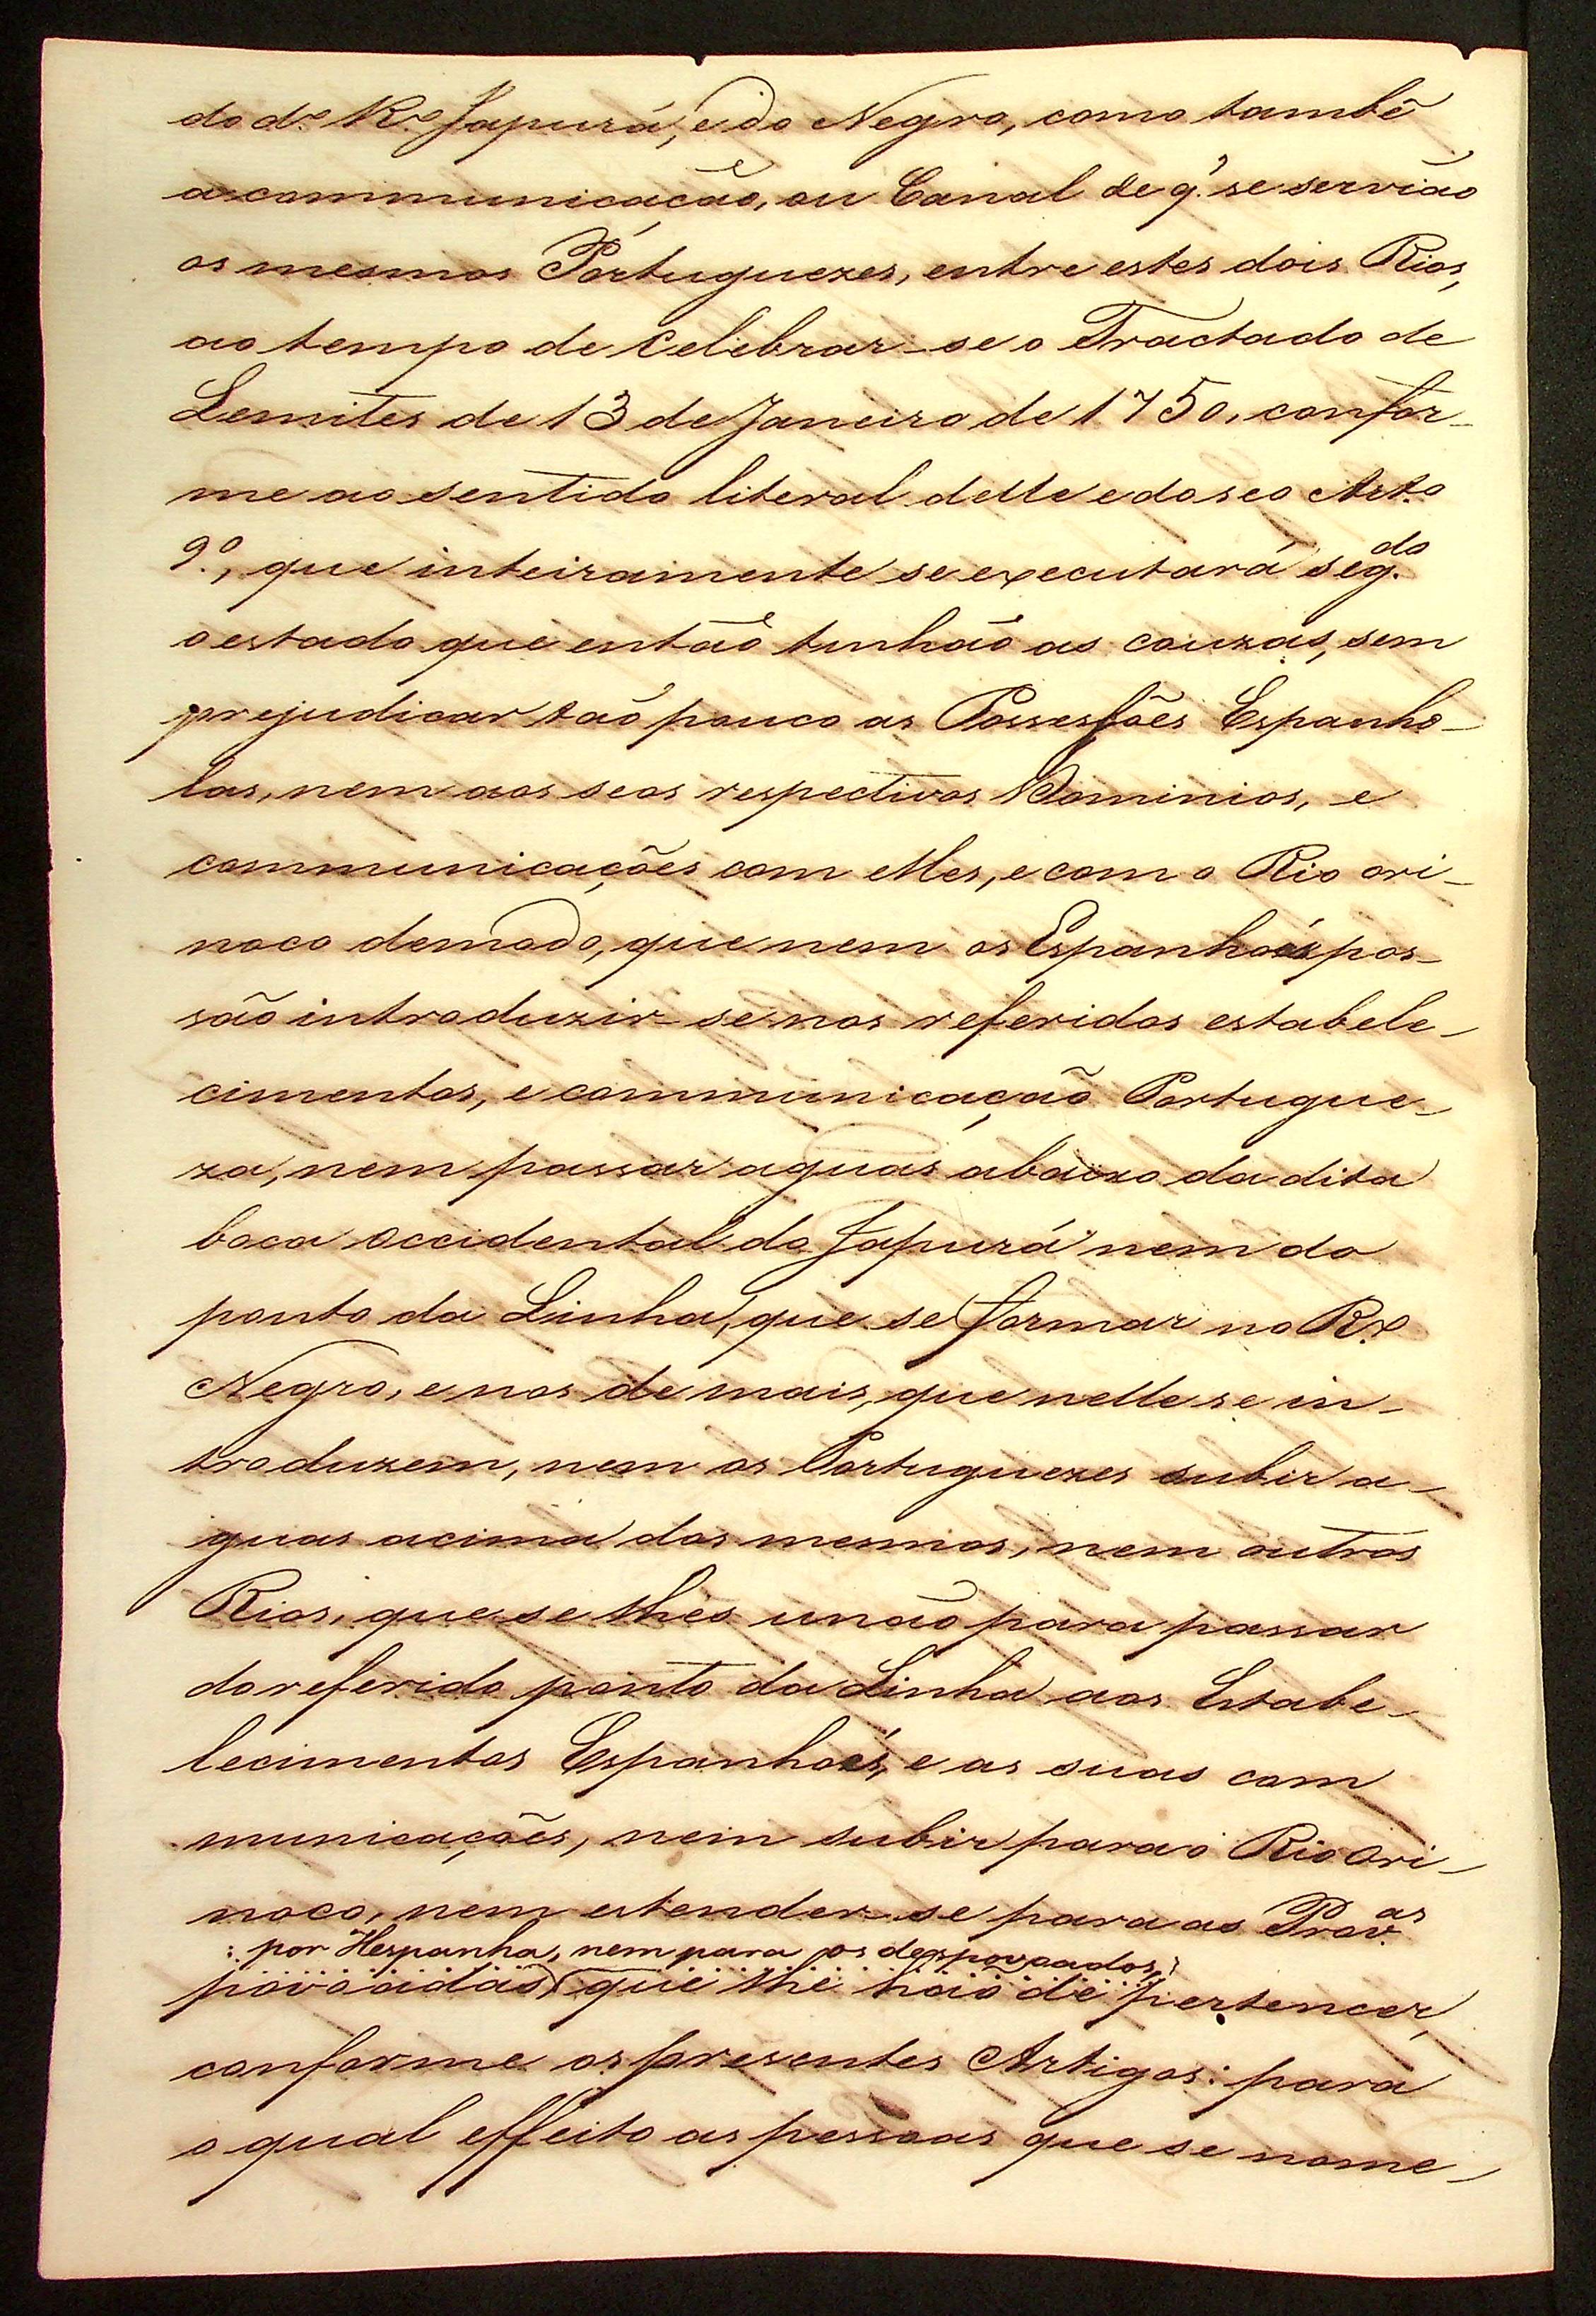 do d.º R.º Japurá, e do Negro, como tambẽ
a communicação, ou Canal de q̃. se servião
os mesmos Portuguezes, entre estes dois Rios,
ao tempo de Celebrar-se o Tractado de
Lemites de 13 de Janeiro de 1750, confor-
me ao sentido literal delle e do seo Art.o
9.º, que inteiramente se executará seg.do
o estado que então tinhão as couzas, sem
prejudicar tão pouco as Possessões Espanho-
las, nem aos seos respectivos Dominios, e
communicações com elles, e com o Rio ori-
noco de modo, que nem os Espanhoés pos-
são introduzir-se nos referidos estabele-
cimentos, e communicação Portugue-
za, nem passar aguas abaixo da dita
boca occidental do Japurá nem do
ponto da Linha, que se formar no R.º
Negro, e nos de mais, que nelle se in-
troduzem, nem os Portuguezes subir a-
guas acima dos mesmos, nem outros
Rios, que se lhes unão para passar
do referido ponto da Linha aos Estabe-
lecimentos Espanhoés, e as suas com
municações, nem subir para o Rio Ori-
noco, nem estender-se para as Prov.as
: por Hespanha, nem para os despovoados,:
povoadas, que lhe hão de pertencer,
conforme os presentes Artigos: para
o qual effeito as pessoas que se nome-